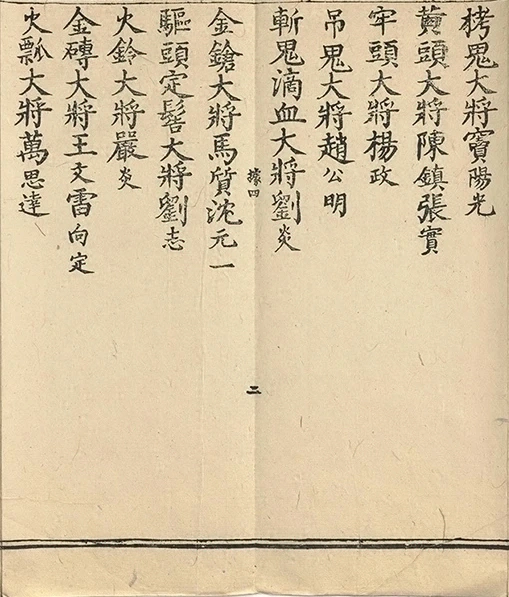 栲鬼大將竇陽光
黃頭大將陳鎮張實
牢頭大將楊政
吊鬼大將趙公明
斬鬼滴血大將劉炎
據四
二
金鎗大將馬質沈元一
驅頭定髻大將劉志
火鈴大將嚴炎
金磚大將王文雷向定
火瓢大將萬思達